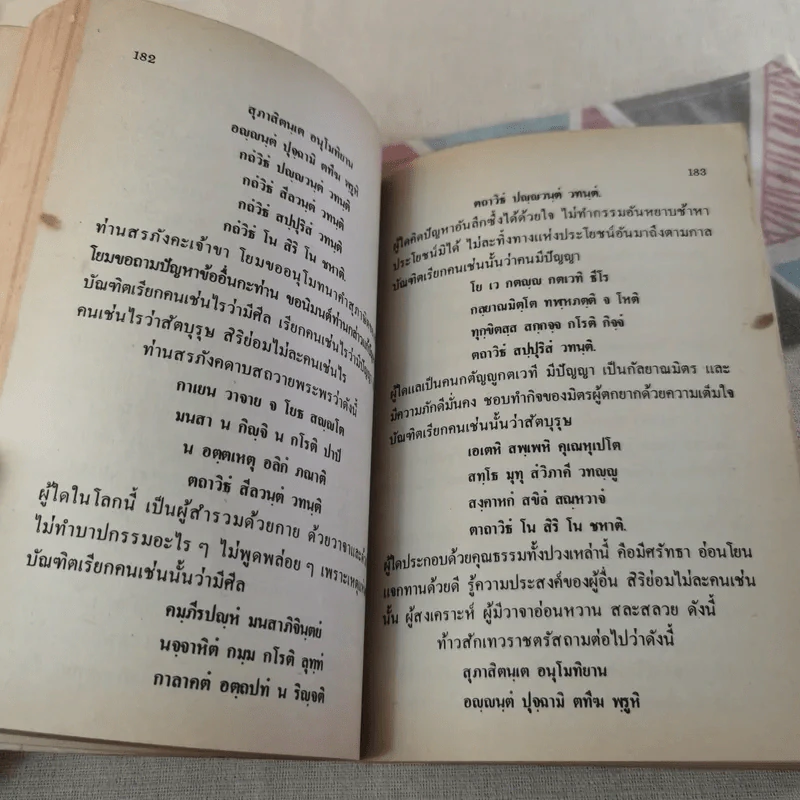 182
สุภาสิตนฺเต อนุโมทิยาน
อญฺญนฺตํ ปุจฺฉามิ ตทีฆ พฺรูหิ
กถํวิธํ ปญฺญวนฺตํ วทนฺติ
กถํวิธํ สีลวนฺตํ วทนฺติ
กถํวิธํ สปฺปุริสํ วทนฺติ
กถํวิธํ โน สิริ โน ชหาติ.
ท่านสรภังคะเจ้าขา โยมขออนุโมทนาคำสุภาษิต
โยมขอถามปัญหาข้ออื่นกะท่าน ขอนิมนต์ท่านกล่าว
บัณฑิตเรียกคนเช่นไรว่ามีศีล เรียกคนเช่นไรว่ามีปัญญา
คนเช่นไรว่าสัตบุรุษ สิริย่อมไม่ละคนเช่นไร
ท่านสรภังคดาบสถวายพระพรว่าดังนี้
กาเยน วาจาย จ โยธ สญฺญโต
มนสา น กิญฺจิ น กโรติ ปาปํ
น อตฺตเหตุ อลิกํ ภณาติ
ตถาวิธํ สีลวนฺตํ วทนฺติ
ผู้ใดในโลกนี้ เป็นผู้สำรวมด้วยกาย ด้วยวาจาและ
ไม่ทำบาปกรรมอะไร ๆ ไม่พูดพล่อย ๆ เพราะเหตุ
บัณฑิตเรียกคนเช่นนั้นว่ามีศีล
คมฺภีรปญฺหํ มนสาภิจินฺตยํ
นจฺจาหิตํ กมฺม กโรติ ลุทฺทํ
กาลาคตํ อตฺถปทํ น ริญฺจติ
183
ตถาวิธํ ปญฺญวนฺตํ วทนฺติ.
ผู้ใดคิดปัญหาอันลึกซึ้งได้ด้วยใจ ไม่ทำกรรมอันหยาบช้าหา
ประโยชน์มิได้ ไม่ละทิ้งทางแห่งประโยชน์อันมาถึงตามกาล
บัณฑิตเรียกคนเช่นนั้นว่าคนมีปัญญา
โย เว กตญฺญู กตเวทิ ธีโร
กลฺยาณมิตฺโต ทฬฺหภตฺติ จ โหติ
ทุกฺขิตสฺส สกฺกจฺจ กโรติ กิจฺจํ
ตถาวิธํ สปฺปุริสํ วทนฺติ.
ผู้ใดแลเป็นคนกตัญญูกตเวที มีปัญญา เป็นกัลยาณมิตร และ
มีความภักดีมั่นคง ชอบทำกิจของมิตรผู้ตกยากด้วยความเต็มใจ
บัณฑิตเรียกคนเช่นนั้นว่าสัตบุรุษ
เอเตหิ สพฺเพหิ คุเณหุเปโต
สทฺโธ มุทุ สํวิภาคี วทญฺญู
สงฺคาหกํ สขิลํ สณฺหวาจํ
ตาถาวิธํ โน สิริ โน ชหาติ.
ผู้ใดประกอบด้วยคุณธรรมทั้งปวงเหล่านี้ คือมีศรัทธา อ่อนโยน
แจกทานด้วยดี รู้ความประสงค์ของผู้อื่น สิริย่อมไม่ละคนเช่น
นั้น ผู้สงเคราะห์ ผู้มีวาจาอ่อนหวาน สละสลวย ดังนี้
ท้าวสักเทวราชตรัสถามต่อไปว่าดังนี้
สุภาสิตนฺเต อนุโมทิยาน
อญฺญนฺตํ ปุจฺฉามิ ตทีฆ พฺรูหิ